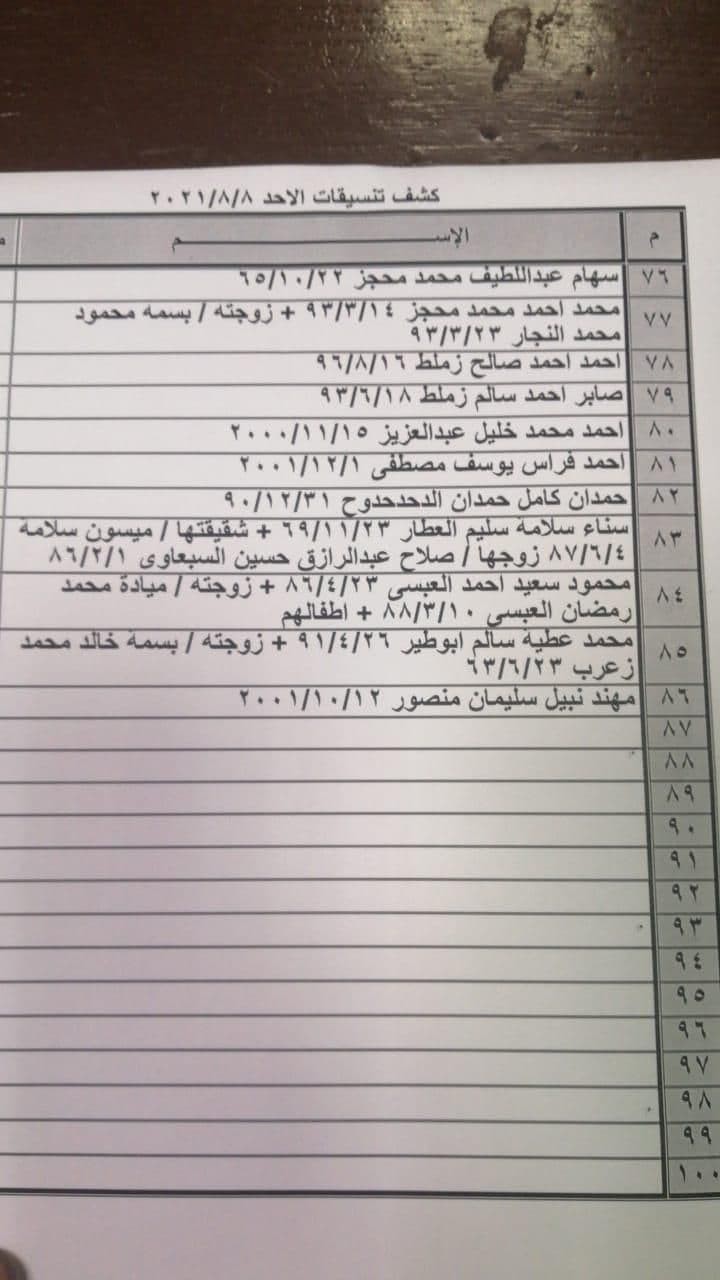 كشف تنسيقات الاحد ٢٠٢١/٨/٨
م الإســـــــــم
٧٦ سهام عبداللطيف محمد محجز ٦٥/١٠/٢٢
٧٧ محمد احمد محمد محجز ٩٣/٣/١٤ + زوجته / بسمه محمود
محمد النجار ٩٣/٣/٢٣
٧٨ احمد احمد صالح زملط ٩٦/٨/١٦
٧٩ صابر احمد سالم زملط ٩٣/٦/١٨
٨٠ احمد محمد خليل عبدالعزيز ٢٠٠٠/١١/١٥
٨١ احمد فراس يوسف مصطفى ٢٠٠١/١٢/١
٨٢ حمدان كامل حمدان الدحدوح ٩٠/١٢/٣١
٨٣ سناء سلامة سليم العطار ٦٩/١١/٢٣ + شقيقتها / ميسون سلامة
٨٧/٦/٤ زوجها / صلاح عبدالرازق حسين السبعاوى ٨٦/٢/١
٨٤ محمود سعيد احمد العبسى ٨٦/٤/٢٣ + زوجته / ميادة محمد
رمضان العبسى ٨٨/٣/١٠ + اطفالهم
٨٥ محمد عطية سالم ابوطير ٩١/٤/٢٦ + زوجته / بسمة خالد محمد
زعرب ٦٣/٦/٢٣
٨٦ مهند نبيل سليمان منصور ٢٠٠١/١٠/١٢
٨٧
٨٨
٨٩
٩٠
٩١
٩٢
٩٣
٩٤
٩٥
٩٦
٩٧
٩٨
٩٩
١٠٠